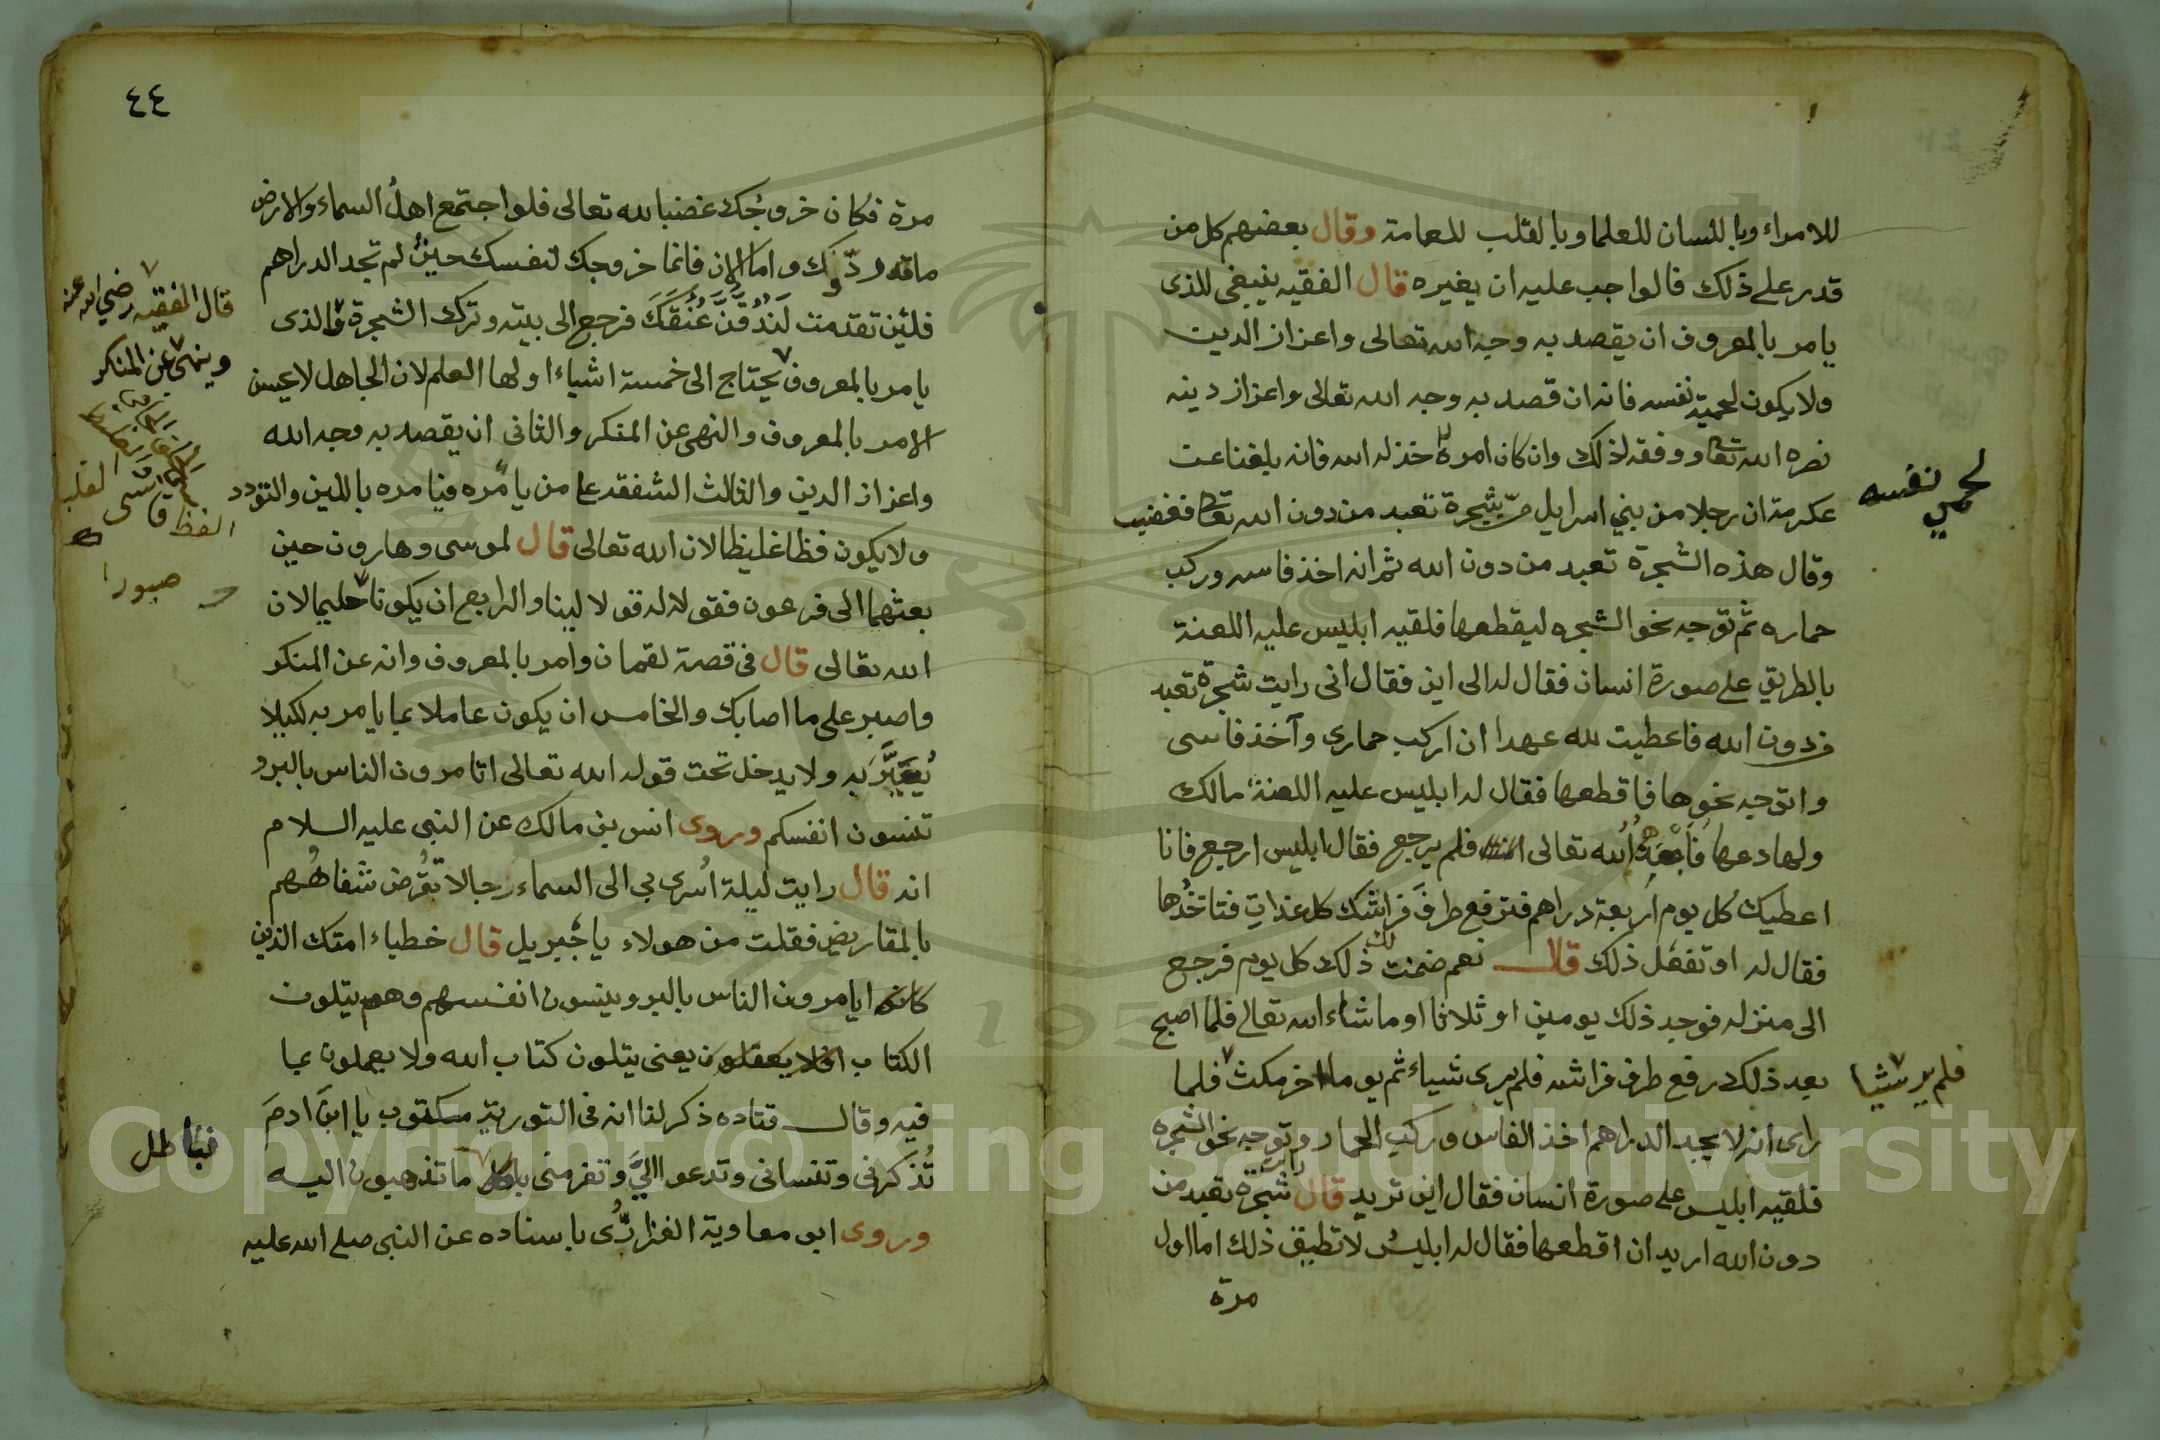 للامراء وباللسان للعلما وبالقلب للعامة وقال بعضهم كل من
قدر على ذلك فالواجب عليه ان يغيره قال الفقيه ينبغي للذى
يامر بالمعروف ان يقصد به وجه الله تعالى واعزاز الدين
ولا يكون لحمية نفسه فانه ان قصد به وجه الله تعالى واعزاز دينه
نصره الله تعا ووفقه لذلك وان كان امره خذله الله فانه بلغنا عن
لحمي نفسه
عكرمة ان رجلا من بني اسرايل مرّ بشجرة تعبد من دون الله تعا فغضب
وقال هذه الشجرة تعبد من دون الله ثم انه اخذ فاسه وركب
حماره ثم توجه نحو الشجره ليقطعها فلقيه ابليس عليه اللعنة
بالطريق على صورة انسان فقال له الى اين فقال انى رايت شجرة تعبد
من دون الله فاعطيت لله عهدا ان اركب حمارى وآخذ فاسى
واتوجه نحوها فاقطعها فقال له ابليس عليه اللعنة مالك
ولها دعها الله تعالى فلم يرجع فقال ابليس ارجع فانا
اعطيك كل يوم اربعة دراهم فترفع طرف فراشك كل غداتٍ فتاخذها
فقال له او تفعل ذلك قال نعم ضمنت لك ذلك كل يوم فرجع
الى منزله فوجد ذلك يومين او ثلاثا او ما شاء الله تعالى فلما اصبح
بعد ذلك رفع طرف فراشه فلم يرى شياء ثم يوما اخر مكث فلما
فلم ير شيئا
راى انه لا يجد الدراهم اخذ الفاس وركب الحمار وتوجه نحو الشجره
فلقيه ابليس على صورة انسان فقال اين تريد قال شجرة تعبد من
دون الله اريد ان اقطعها فقال له ابليس لا تطيق ذلك اما اول
مرة
٤٤
مرة فكان خروجك غضبا لله تعالى فلو اجتمع اهل السماء والارض
ما ردّوك واما الان فانما خروجك لنفسك حين لم تجد الدراهم
قال الفقيه رضي الله عنه
فلئن تقدمت لَنَدُقَّنَّ عُنُقَكَ فرجع الى بيته وترك الشجرة والذى
وينهى عن المنكر
يامر بالمعروف يحتاج الى خمسة اشياء اولها العلم لان الجاهل لا يحسن
الامر بالمعروف والنهى عن المنكر والثانى ان يقصد به وجه الله
واعزاز الدين والثالث الشفقه على من يامره فيامره باللين والتودد
الفظ قاسى القلب
ولا يكون فظا غليظا لان الله تعالى قال لموسى وهارون حين
صبورا
بعثهما الى فرعون فقولا له قولا لينا والرابع ان يكونا حليما لان
الله تعالى قال فى قصة لقمان وامر بالمعروف وانه عن المنكر
واصبر على ما اصابك والخامس ان يكون عاملا بما يامر به لكيلا
يُعَيَّرَ به ولا يدخل تحت قوله الله تعالى اتامرون الناس بالبر و
تنسون انفسكم وروى انس بن مالك عن النبى عليه السلام
انه قال رايت ليلة اُسرى بي الى السماء رجالا تقرض شفاههم
بالمقاريض فقلت من هولاء يا جبريل قال خطباء امتك الذين
كانوا يامرون الناس بالبر وينسون انفسهم وهم يتلون
الكتاب افلا يعقلون يعنى يتلون كتاب الله ولا يعملون بما
فيه وقال قتاده ذكر لنا انه فى التورية مكتوب يا ابنَ ادمَ
تُذكرنى وتنسانى وتدعوا اليَّ وتفر منى ما تذهبون اليه
فباطل
وروى ابو معاوية الفزارُّى باسناده عن النبى صلى الله عليه
Copyright © King Saud University
195